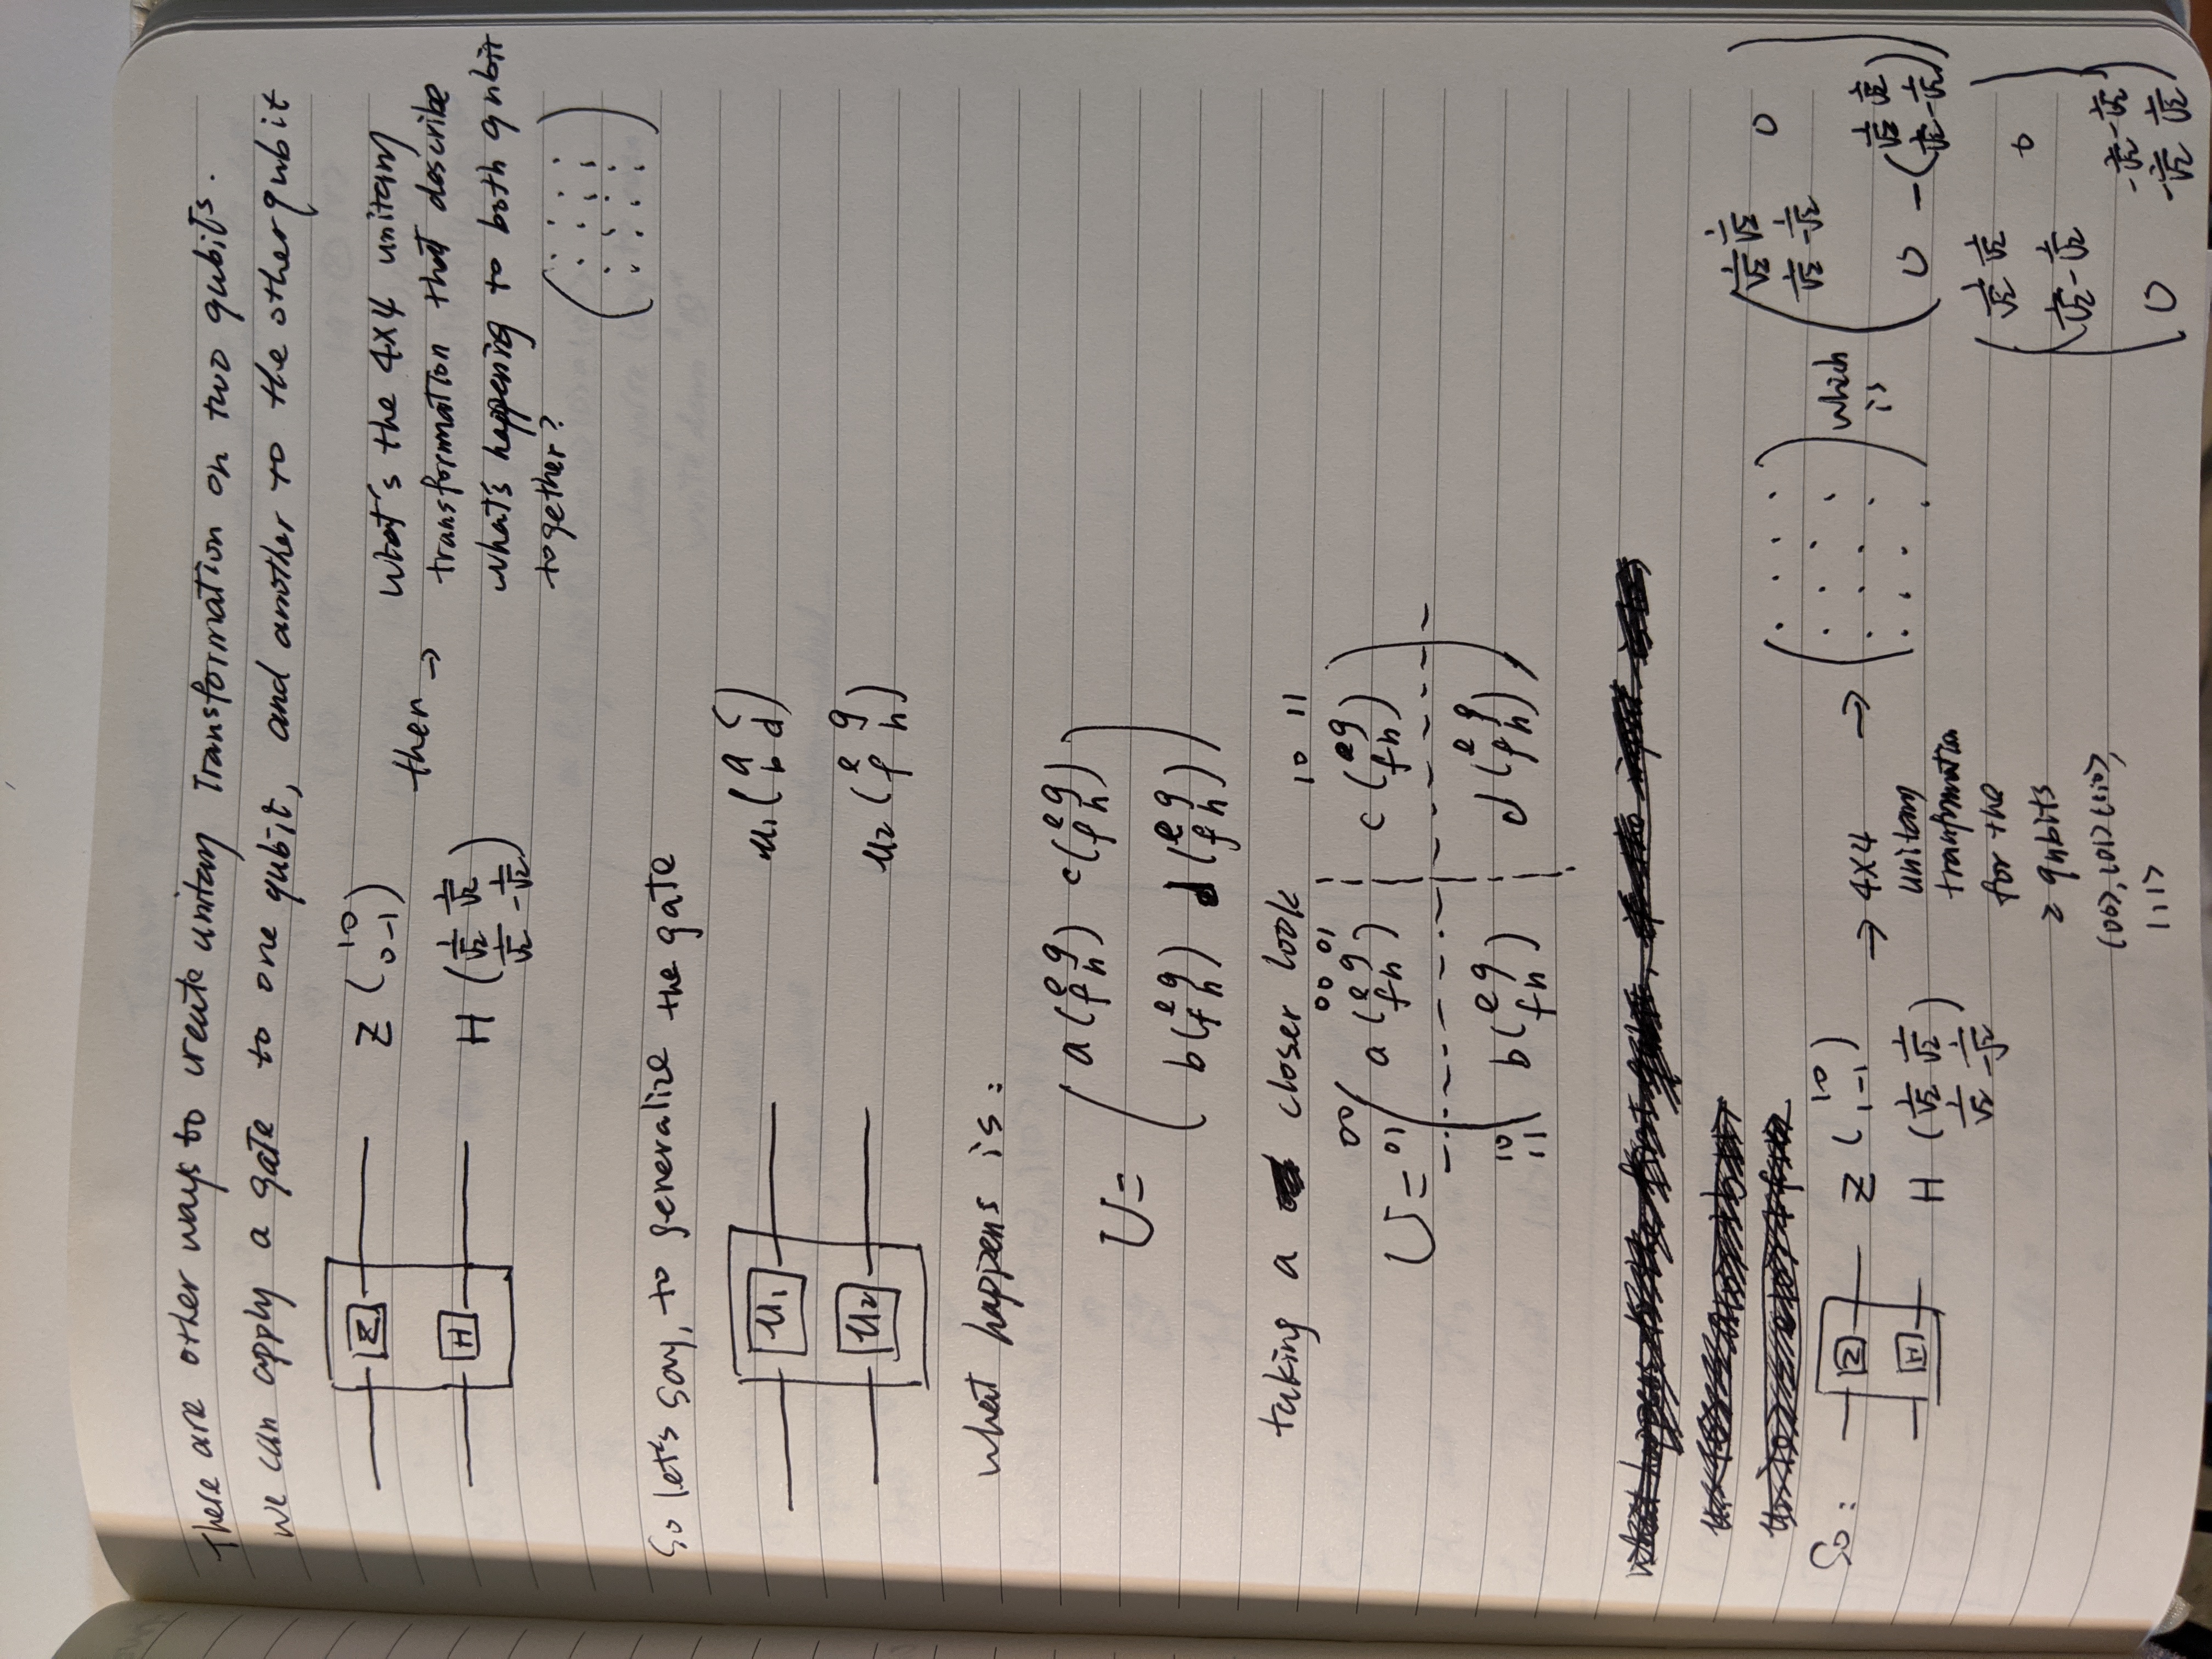 There are other ways to create unitary Transformation on two qubits.
we can apply a gate to one qubit, and another to the other qubit
Z
H
Z ( 1 0
0 -1 )
H ( 1/√2 1/√2
1/√2 -1/√2 )
then →
What's the 4×4 unitary
transformation that describe
what's happening to both qubit
together?
So let's say, to generalize the gate
U1
U2
U1 ( a c
b d )
U2 ( e g
f h )
what happens is:
U = ( a ( e g
f h ) c ( e g
f h )
b ( e g
f h ) d ( e g
f h ) )
taking a closer look
00 01 10 11
00
01
U = ( a ( e g
f h ) c ( e g
f h )
10
11
b ( e g
f h ) d ( e g
f h ) )
what happens
So:
Z
H
Z ( 1 0
1 -1 )
H ( 1/√2 1/√2
1/√2 -1/√2 )
→ 4×4
unitary
tranformation
for the
2 qubits
|00>, |01> |10>,
|11>
→
which
is
( 1/√2 1/√2 0
1/√2 -1/√2
0 -( 1/√2 1/√2
1/√2 -1/√2 ) )
( 1/√2 1/√2 0
1/√2 -1/√2
0 -1/√2 -1/√2
-1/√2 1/√2 )